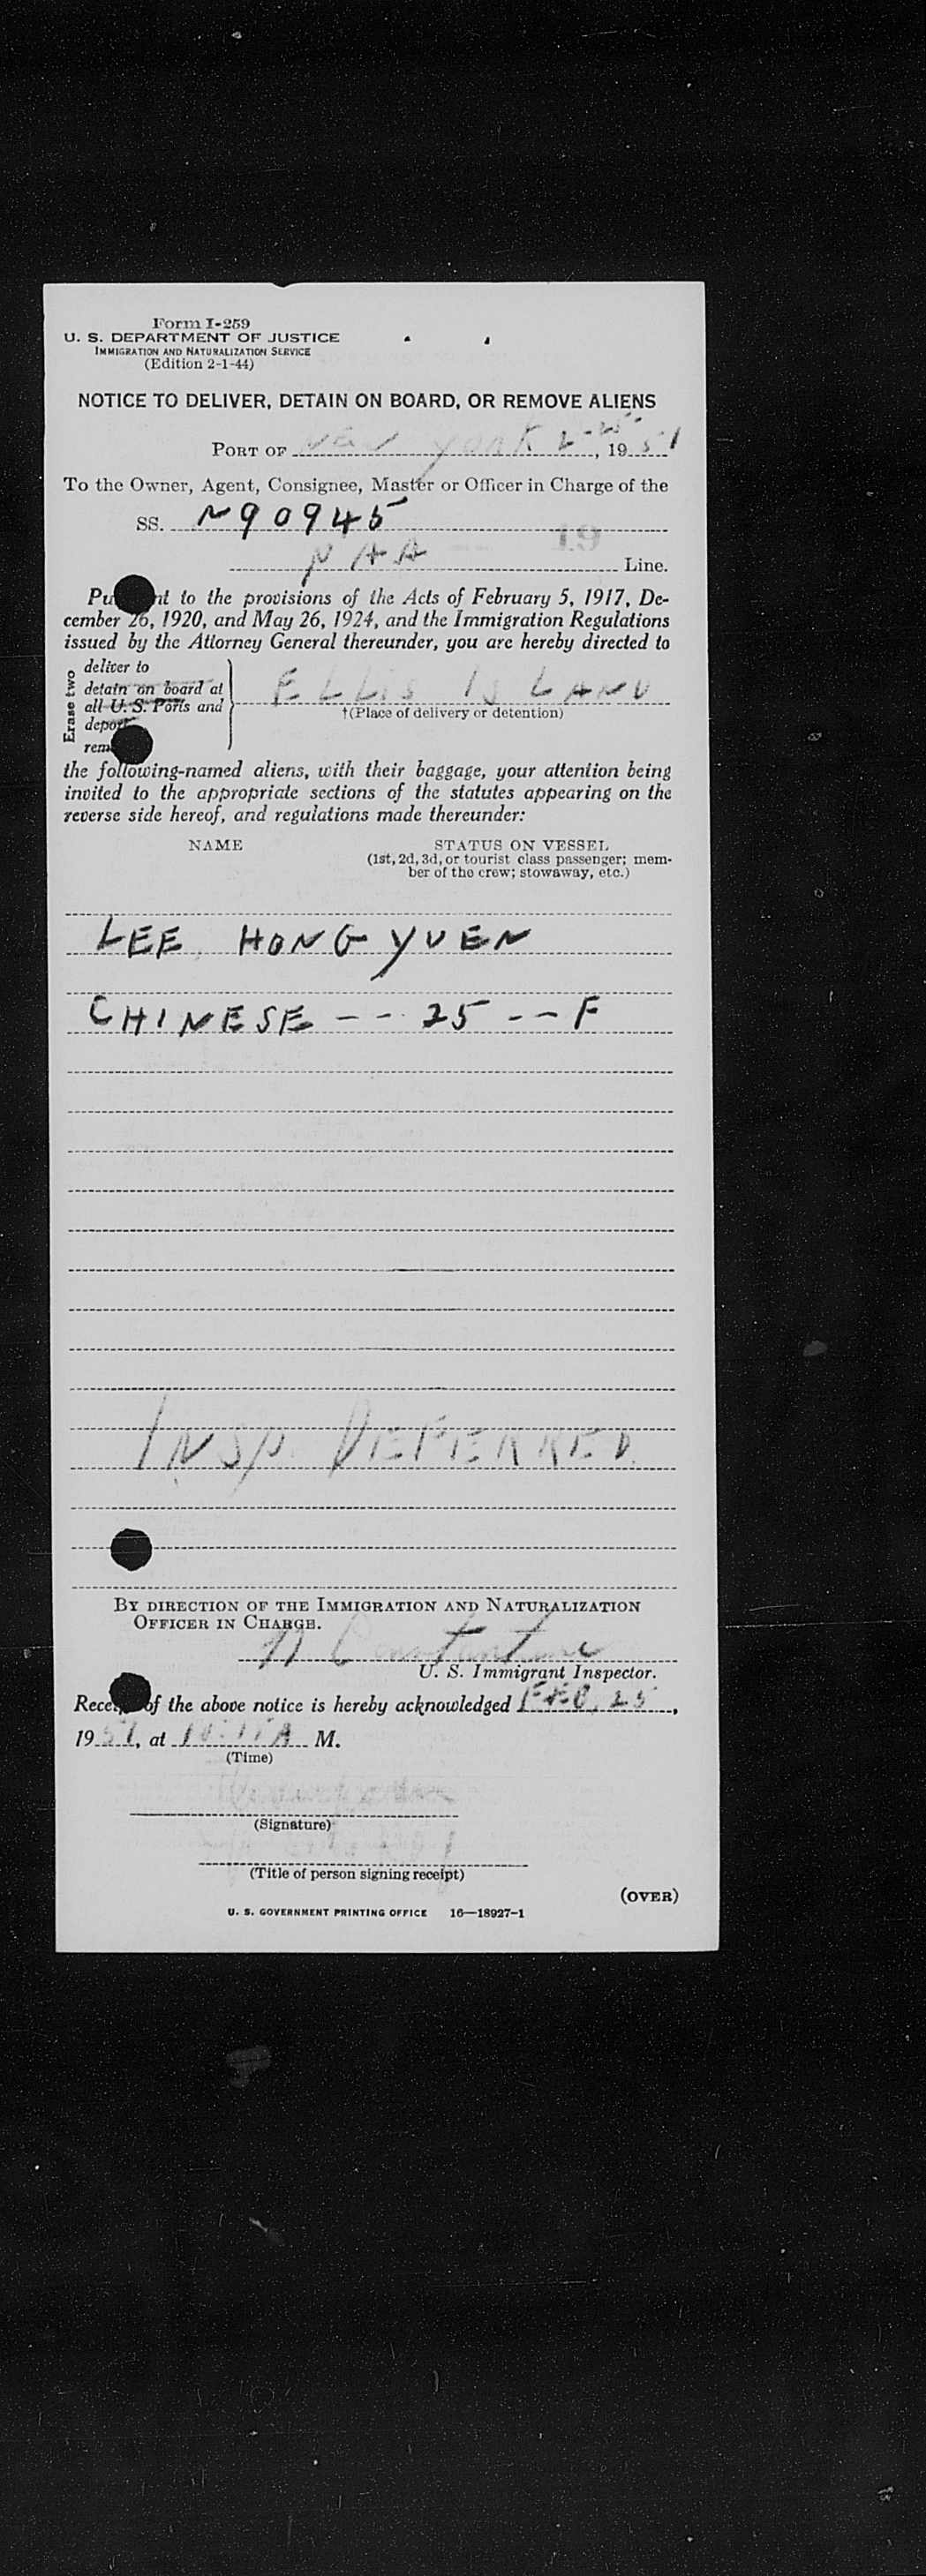 Form I-259
U. S. DEPARTMENT OF JUSTICE
IMMIGRATION AND NATURALIZATION SERVICE
(Edition 2-1-44)
NOTICE TO DELIVER, DETAIN ON BOARD, OR REMOVE ALIENS
PORT OF NEW YORK 2-25-, 1951
To the Owner, Agent, Consignee, Master or Officer in Charge of the
SS. N90945
19
PAA Line.
Pu nt to the provisions of the Acts of February 5, 1917, De-
cember 26, 1920, and May 26, 1924, and the Immigration Regulations
issued by the Attorney General thereunder, you are hereby directed to
Erase two
deliver to
detain on board at
all U. S. Ports and
deport
rem
ELLIS ISLAND
†(Place of delivery or detention)
the following-named aliens, with their baggage, your attention being
invited to the appropriate sections of the statutes appearing on the
reverse side hereof, and regulations made thereunder:
NAME STATUS ON VESSEL
(1st, 2d, 3d, or tourist class passenger; mem-
ber of the crew; stowaway, etc.)
LEE, HONG YUEN
CHINESE -- 25 -- F
INSP. DEFERRED
BY DIRECTION OF THE IMMIGRATION AND NATURALIZATION
OFFICER IN CHARGE.
U. S. Immigrant Inspector.
Rece of the above notice is hereby acknowledged FEB. 25,
1951, at A M.
(Time)
(Signature)
(Title of person signing receipt)
(OVER)
U. S. GOVERNMENT PRINTING OFFICE 16—18927-1